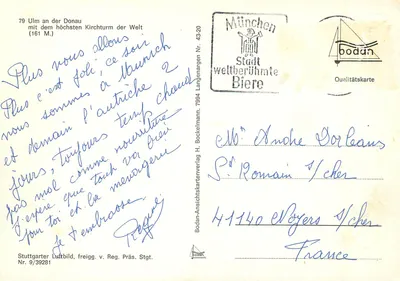 79 Ulm an der Donau
mit dem höchsten Kirchturm der Welt
(161 M.)
Plus nous allons
Plus c'est joli, ce soir
nous sommes à Munich
et demain l'autriche 2
jours, toujours temps chaud
pas mal comme nourriture
J'espère que tout va bien
pour toi et la ménagerie
Je t'embrasse
Stuttgarter Luftbild, freigg. v. Reg. Präs. Stgt.
Nr. 9/39281
Boden-Ansichtskartenverlag H. Bockelmann, 7994 Langenargen Nr. 43-20
München
Stadt
weltberühmte
Biere
bodan
Qualitätskarte
Mr Andre Dorleans
St Romain s/cher
41140 Noyers s/cher
France